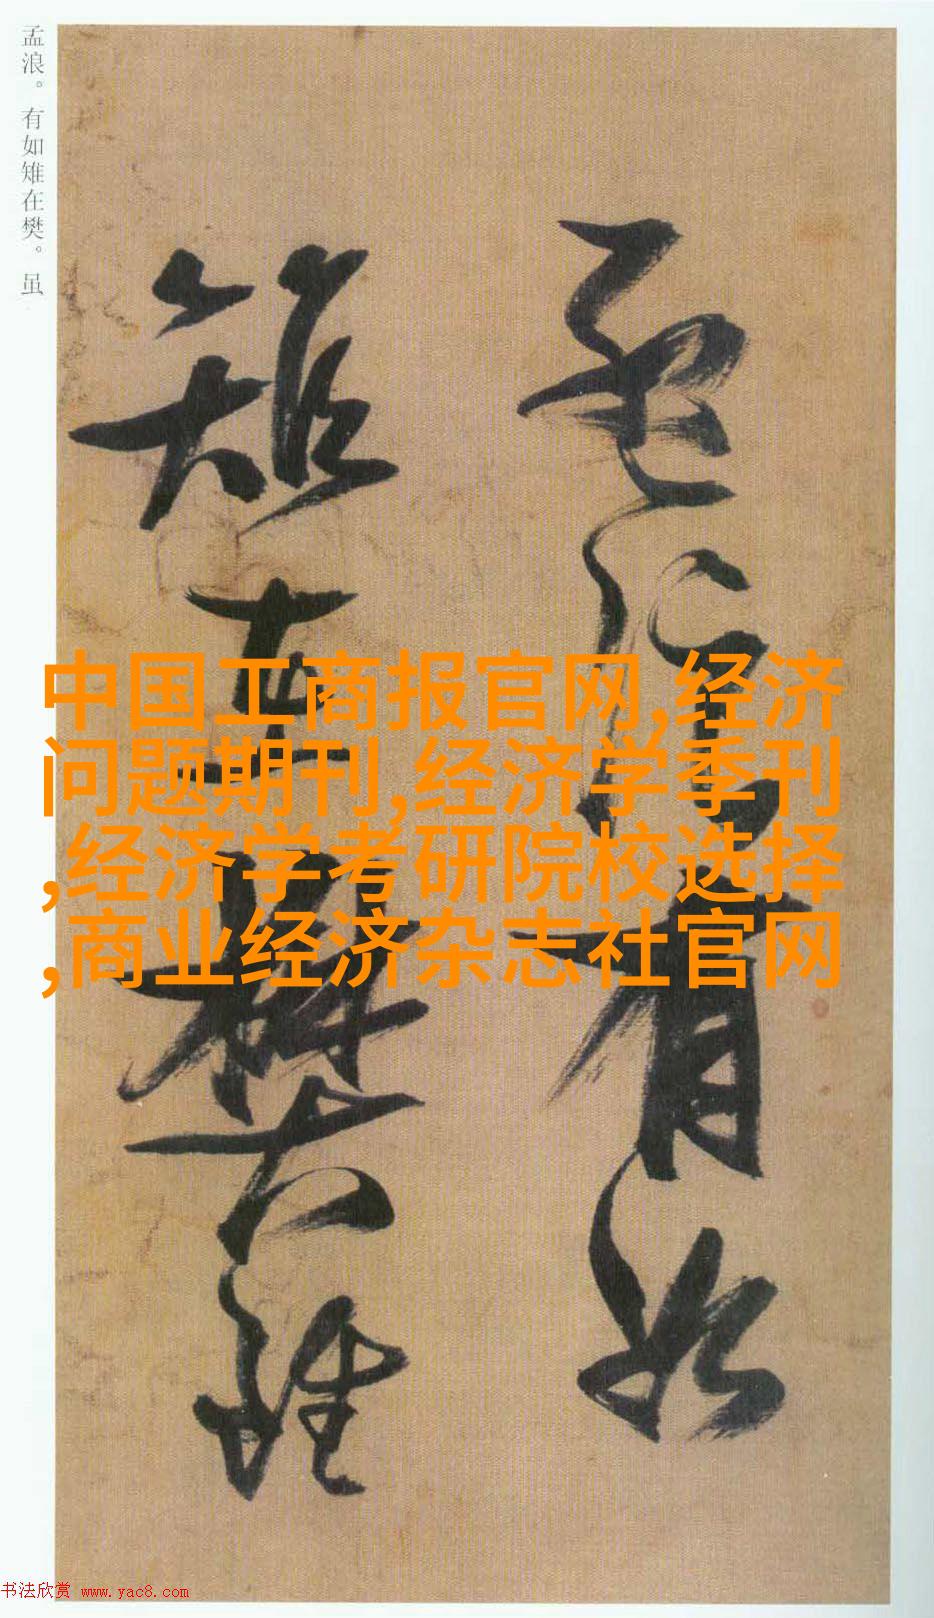 孟浪。有如雉在樊。虽
孟浪有如
雉在樊虽
中国工商报官网,经济
问题期刊,经济学季刊
,经济学考研院校选择
,商业经济杂志社官网
书法欣赏 www.yac8.com